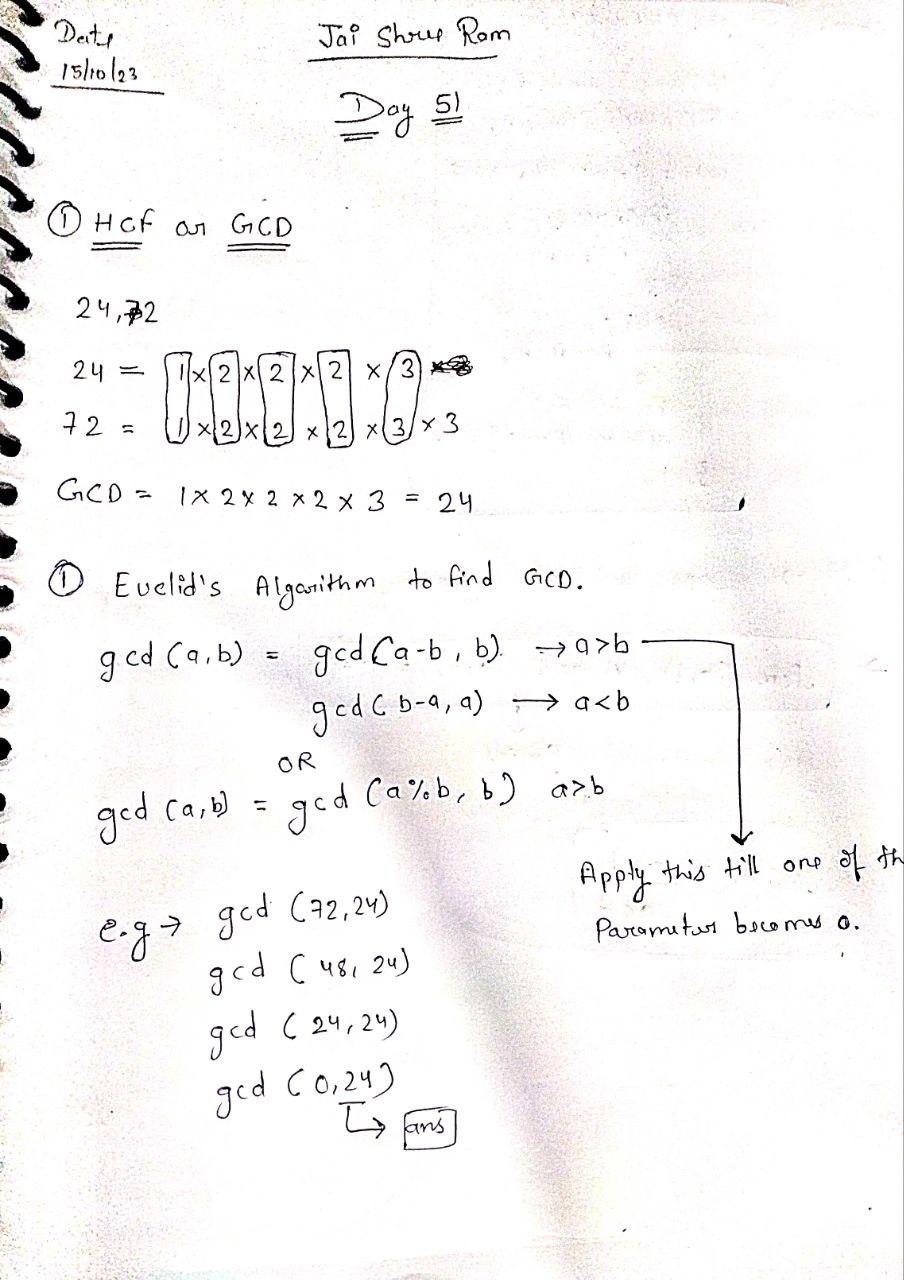 Date
15/10/23
Jai Shree Ram
Day 51
① HCF or GCD
24,72
24 = 1 x 2 x 2 x 2 x 3
72 = 1 x 2 x 2 x 2 x 3 x 3
GCD = 1 x 2 x 2 x 2 x 3 = 24
① Euclid's Algorithm to find GCD.
gcd (a,b) = gcd (a-b, b) → a>b
gcd (b-a, a) → a<b
OR
gcd (a,b) = gcd (a%b, b) a>b
Apply this till one of th
Parameters becomes 0.
e.g → gcd (72,24)
gcd (48, 24)
gcd (24,24)
gcd (0,24)
ans